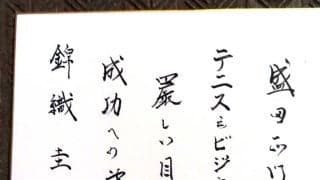 盛田正
テニスもビジ
厳しい目
成功への
錦織圭